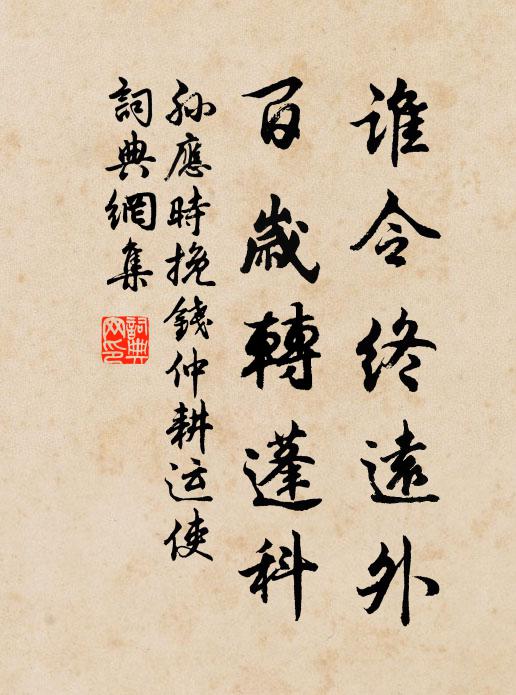 谁令终遠外
百歲轉蓬科
孫應時挽錢仲耕运使
詞典網集
詞典网印